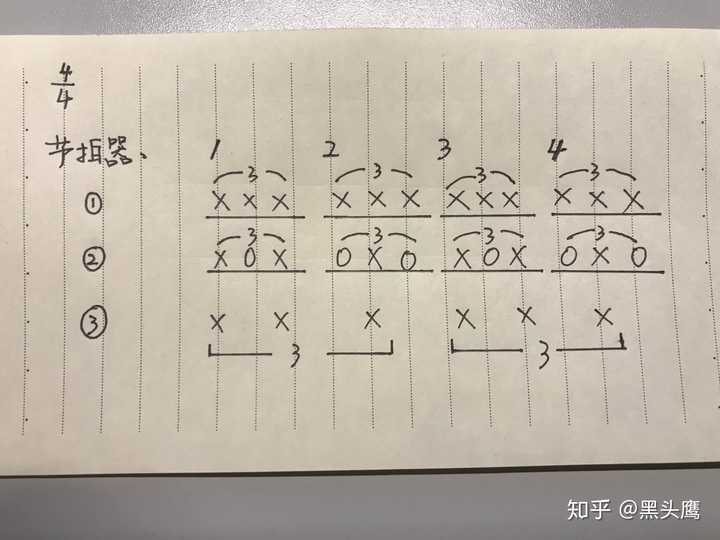 4/4
节拍器、 1 2 3 4
3 3 3 3
① X X X X X X X X X X X X
3 3 3 3
② X O X O X O X O X O X O
③ X X X X X X
3 3
知乎 @黑头鹰